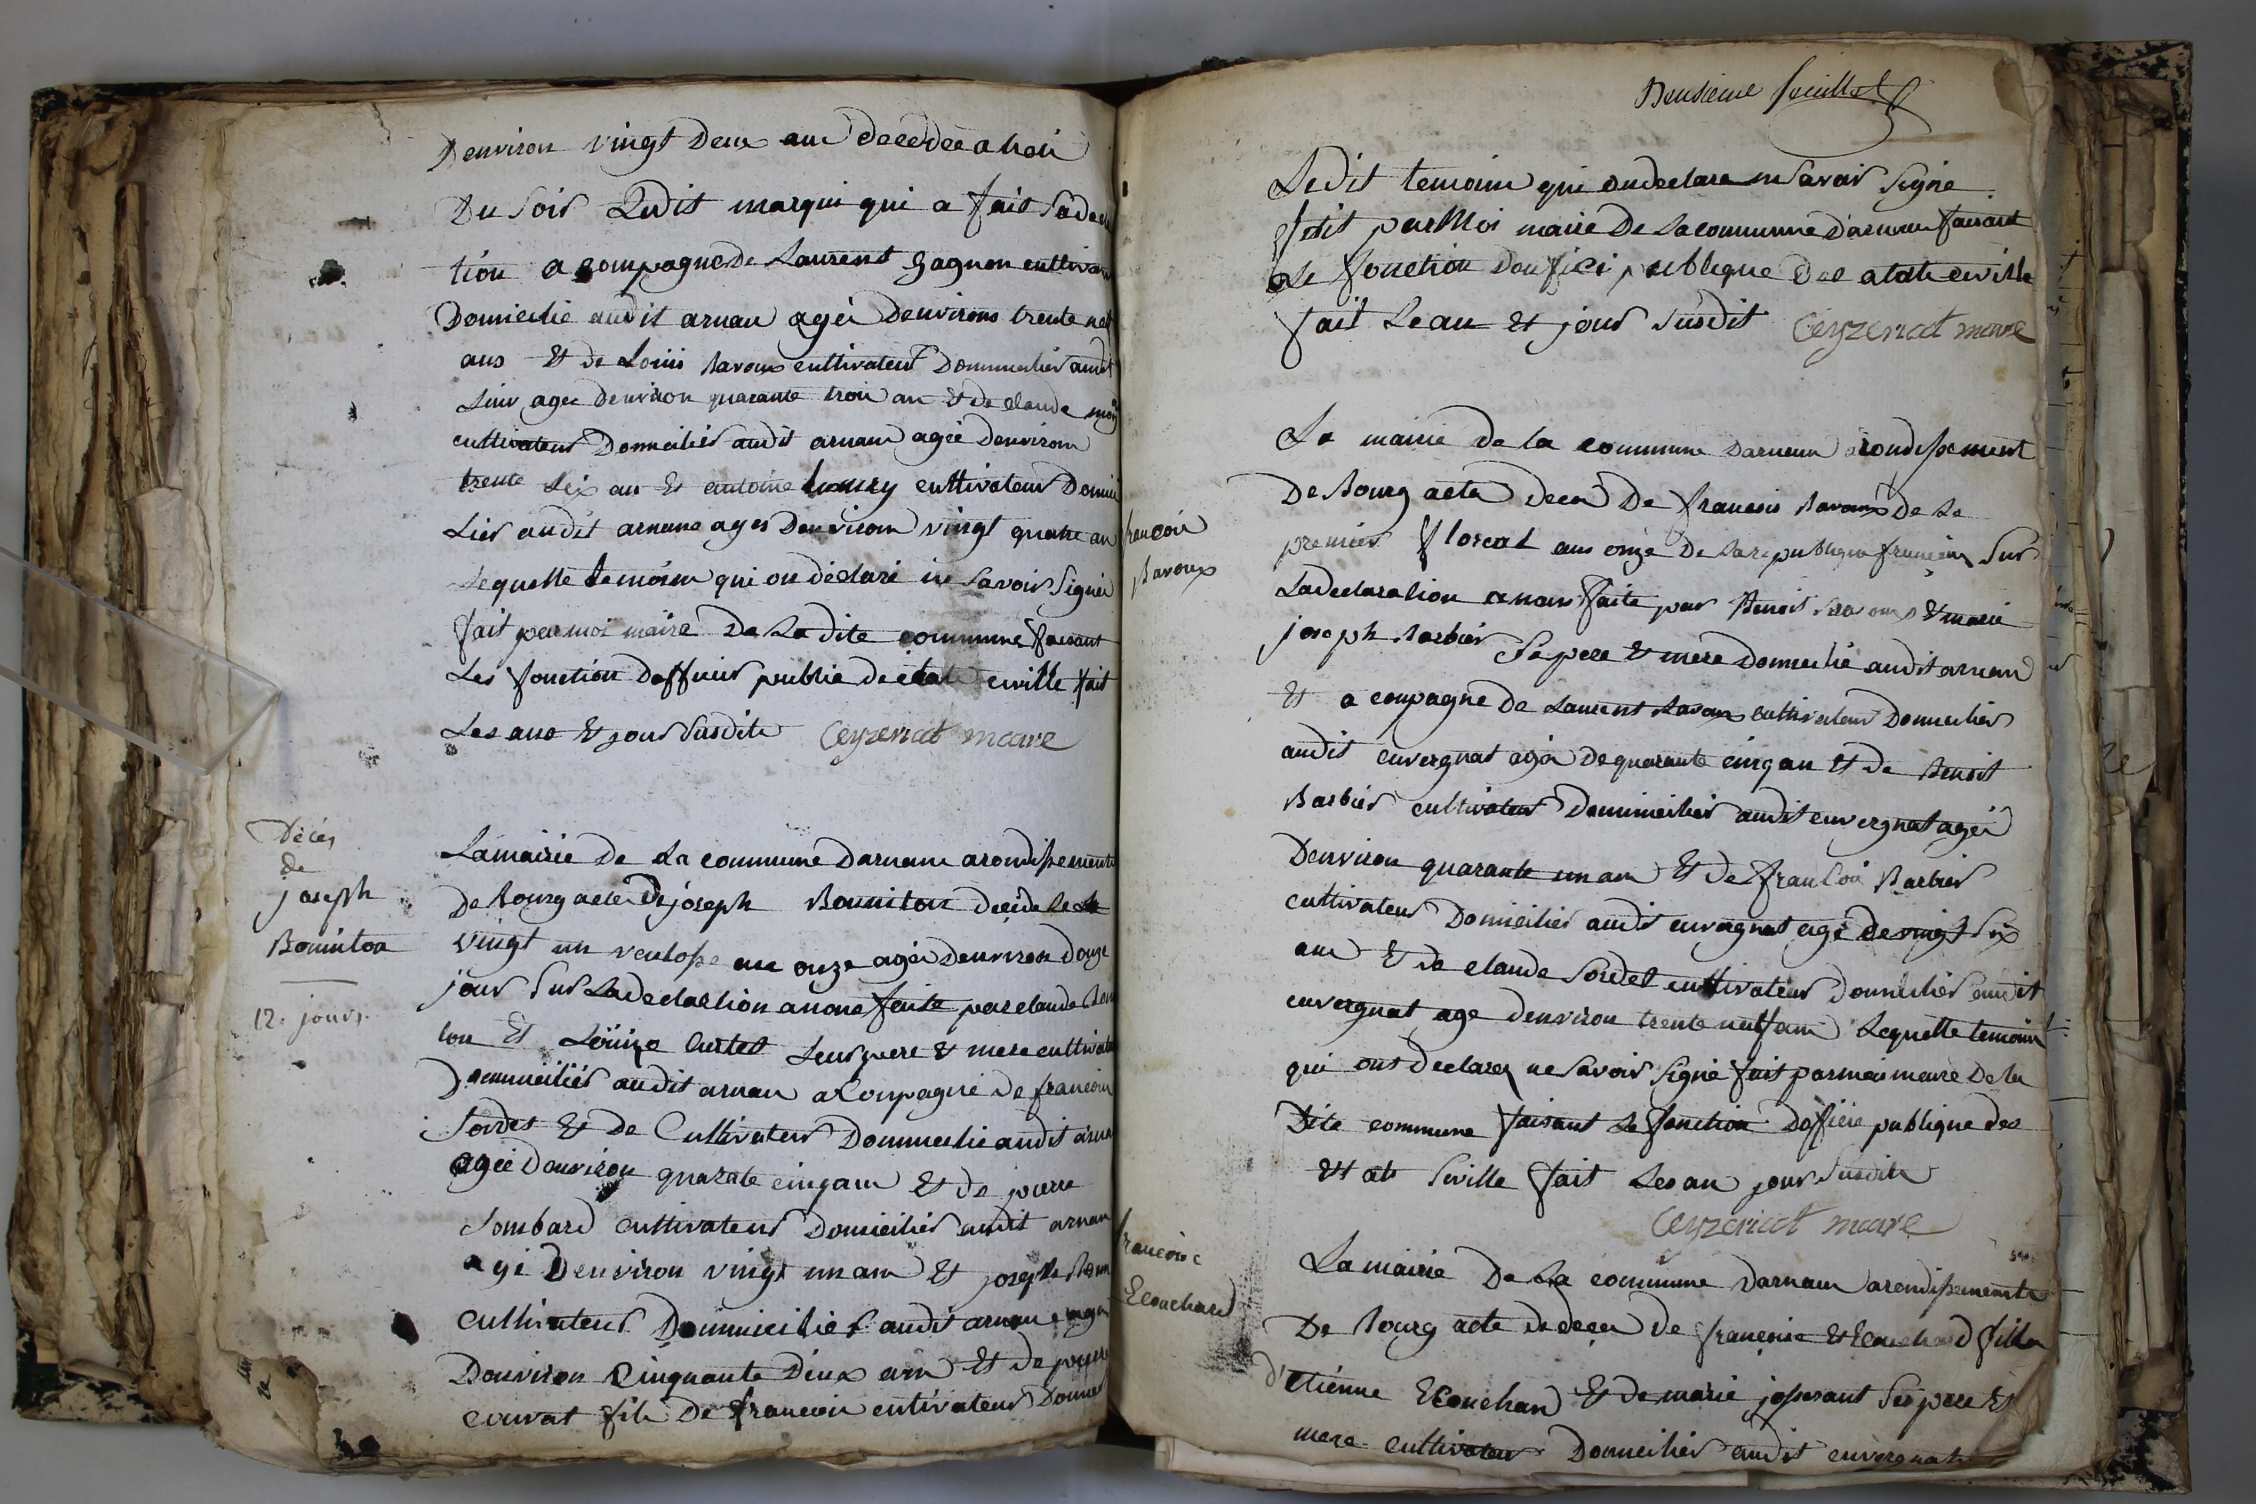 Denviron vingt Deux ans decedée a troi
Du Soir Ledit marqui qui a fait sa decla
tion a compagne de Laurent gagnon cultivat
Domicilie audit arnan agéé Denvirons trente neuf
ans et de Louis Ravoux cultivateur Dommicilier audit
Lieur agee denviron quarante troi an et de claude
cultivateur Domicilier audit arnan agéé denviron
trente Six an et antoine cultivateur Domici
Lier audit arnan ages Denviron vingt quatre an
Lequelle temoin qui on déclaré ne Savoir Signér
fait par moi maire De La dite commune faisant
Les fonction Dofficier public de état civille fait
Les ans et jour Susdits Ceyzeriat maire
Décès
de
joseph
Bouniton
12. jours.
La mairie de La commune Darnan arondissement
De Bourg acte De joseph Bouniton decéde Le
vingt un ventosse ans onze agéé Denviron douze
jour Sur La declaration a nous faite par claude Bou
ton Et Loüise Curtet Leur pere et mere cultivate
Dommiciliés audit arnan acompagné de francoi
Sordet Et De Cultivateur Dommicilie audit arna
agéé Denviron quarate cinq ans Et de pierre
Sombard cultivateur Domicilier audit arnan
agé Denviron vingt un an Et joseph
cultivateur Dommicilier audit arnan
Denviron Cinquante Deux an Et de pierre
fils De francoi cultivateur Domici
Deusieme feuillet
Ledit temoin qui on declare ne Savoir Signe
fait par Moi maire De La commune Darnan faisant
Le fonction publique Des civille
fait Le an Et jour Susdit Ceyzeriat maire
francoi
Ravoux
La mairie de la commune Darnan arondissement
De Bourg acte decé De francois Ravoux De Le
premier floreal ans onze De La republique francéin Sur
La declaration a nous faite par Benoit Ravoux Et marie
joseph Barbier Se pere Et mere Domicilié audit arnan
Et a compagne De Laurent Ravoux cultivateur Domicilier
audit cuvergnat agéé De quarante cinq an Et de Benoit
Barbier cultivateur Dommicilier audit cuvergnat agéé
Denviron quarante un an Et De francoi Barbier
cultivateur Domicilier audit cuvergnat agé de vingt Six
ans Et de claude Sordet cultivateur Domicilier audit
cuvergnat age denviron trente neuf an Lequelle temoin
qui ont Declarez ne Savoir Signé fait par moi maire De la
Dite commune faisant Le fonction Dofficie publique des
Et ats Siville fait Les an jour Susdits
Ceyzeriat maire
francoise
Ecouchard
La mairie De La commune Darnan arondissements
De Bourg acte de decés de francoise Et Ecouchard fille
d'etiénne Ecouchan Et De marie josserant Ses pere Et
mere cultivateur Domicilier audit cuvergnat